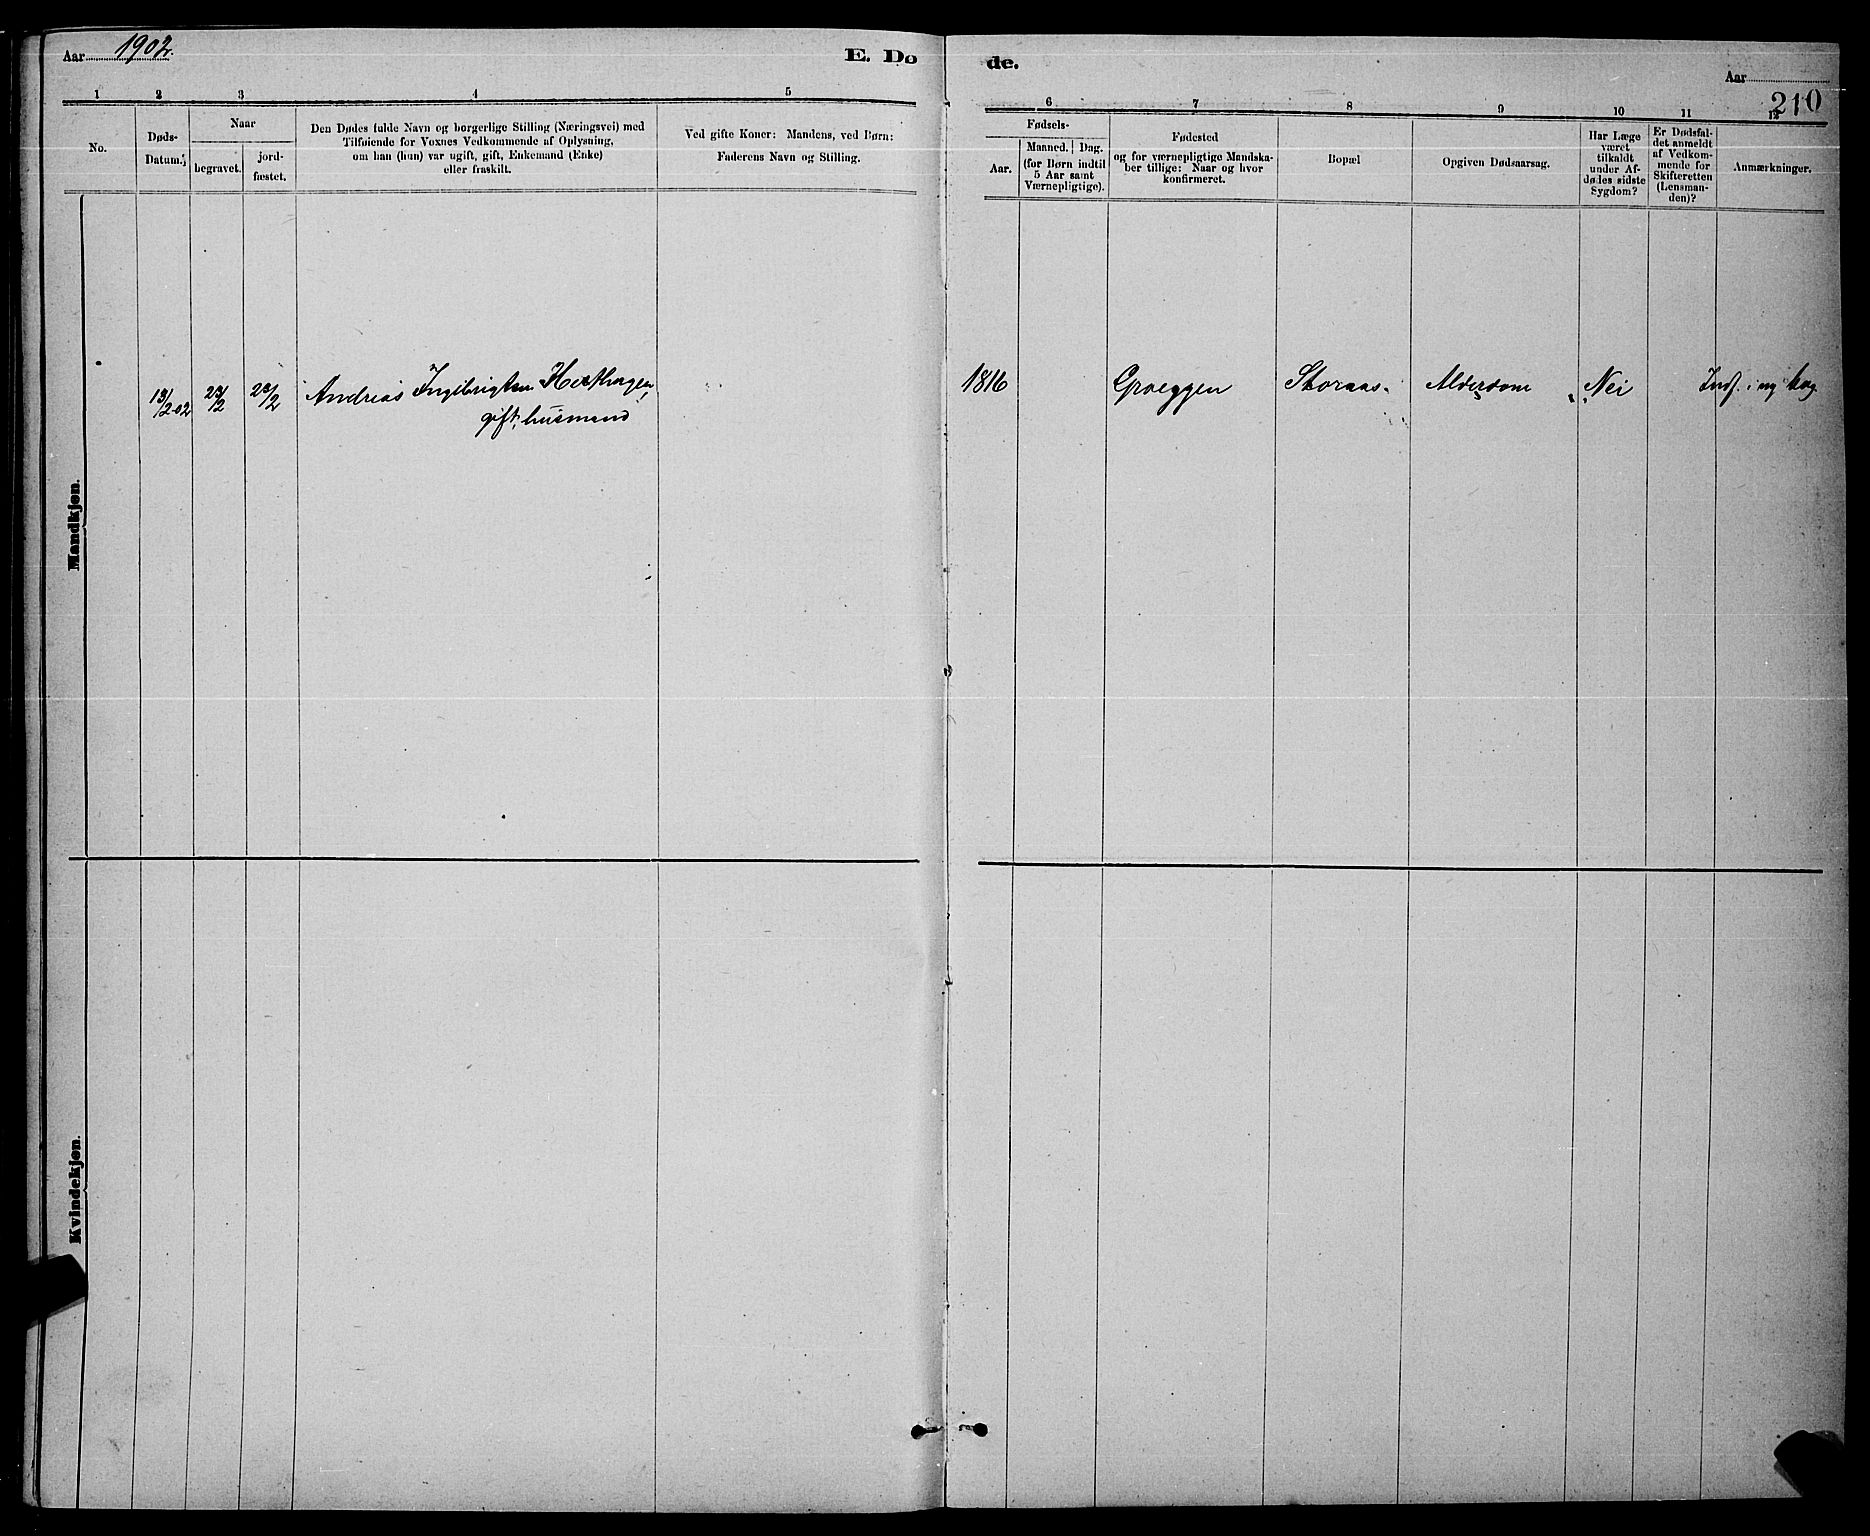 Aar 1902.
E. Dø
de.
Aar
210
1 2 3 4 5
6 7 8 9 10 11 12
No.
Døds-
Datum.
Naar
begravet.
jord-
fæstet.
Den Dødes fulde Navn og borgerlige Stilling (Næringsvei) med
Tilføiende for Voxnes Vedkommende af Oplysning,
om han (hun) var ugift, gift, Enkemand (Enke)
eller fraskilt.
Ved gifte Koner: Mandens, ved Børn:
Faderens Navn og Stilling.
Fødsels-
Aar.
Maaned. Dag.
(for Børn indtil
5 Aar samt
Værnepligtige).
Fødested
og for værnepligtige Mandska-
ber tillige: Naar og hvor
konfirmeret.
Bopæl
Opgiven Dødsaarsag.
Har Læge
været
tilkaldt
under Af-
dødes sidste
Sygdom?
Er Dødsfal-
det anmeldt
af Vedkom-
mende for
Skifteretten
(Lensman-
den)?
Anmærkninger.
Mandkjøn.
13/2-02 23/2 23/2 Andreas Ingebrigtsen
gift, husmand
1816 Storaas Alderdom Nei Indf. i ny bog
Kvindekjøn.